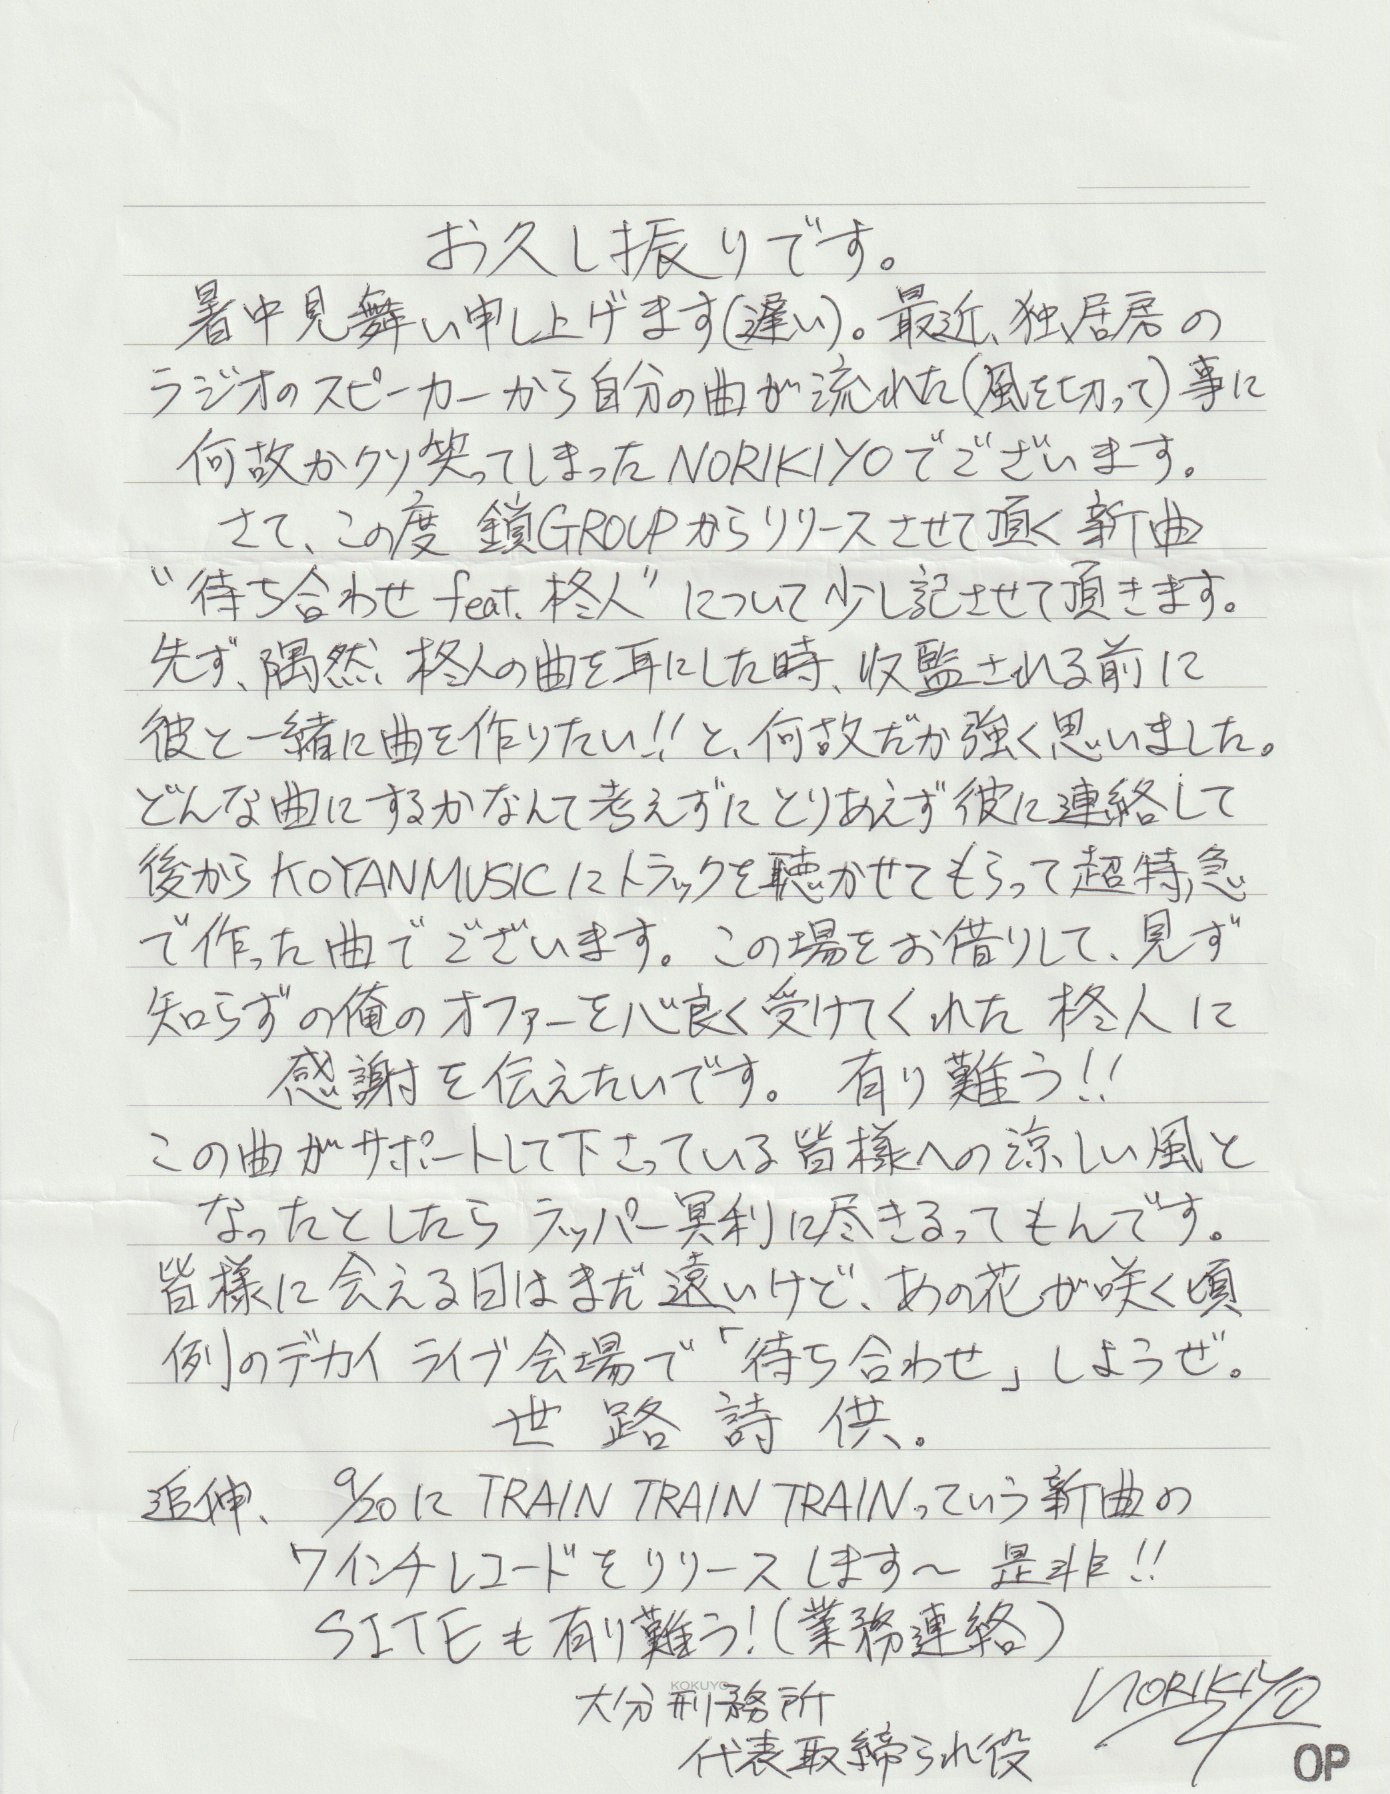 お久し振りです。
暑中見舞い申し上げます(遅い)。最近、独居房の
ラジオのスピーカーから自分の曲が流れた(風を切って)事に
何故かクソ笑ってしまったNORIKIYOでございます。
さて、この度 鎖GROUPからリリースさせて頂く新曲
"待ち合わせ feat. 柊人"について少し記させて頂きます。
先ず、隅然、柊人の曲を耳にした時、収監される前に
彼と一緒に曲を作りたい!!と、何故だか強く思いました。
どんな曲にするかなんて考えずにとりあえず彼に連絡して
後からKOYANMUSICにトラックを聴かせてもらって超特急
で作った曲でございます。この場をお借りして、見ず
知らずの俺のオファーを心良く受けてくれた柊人に
感謝を伝えたいです。 有り難う!!
この曲がサポートして下さっている皆様への涼しい風と
なったとしたらラッパー冥利に尽きるってもんです。
皆様に会える日はまだ遠いけど、あの花が咲く頃
例のデカイライブ会場で「待ち合わせ」しようぜ。
世路詩供。
追伸、 9/20にTRAIN TRAIN TRAINっていう新曲の
7インチレコードをリリースします〜 是非!!
SITEも有り難う!(業務連絡)
KOKUYO
大分刑務所
代表取締られ役
NORIKIYO
OP